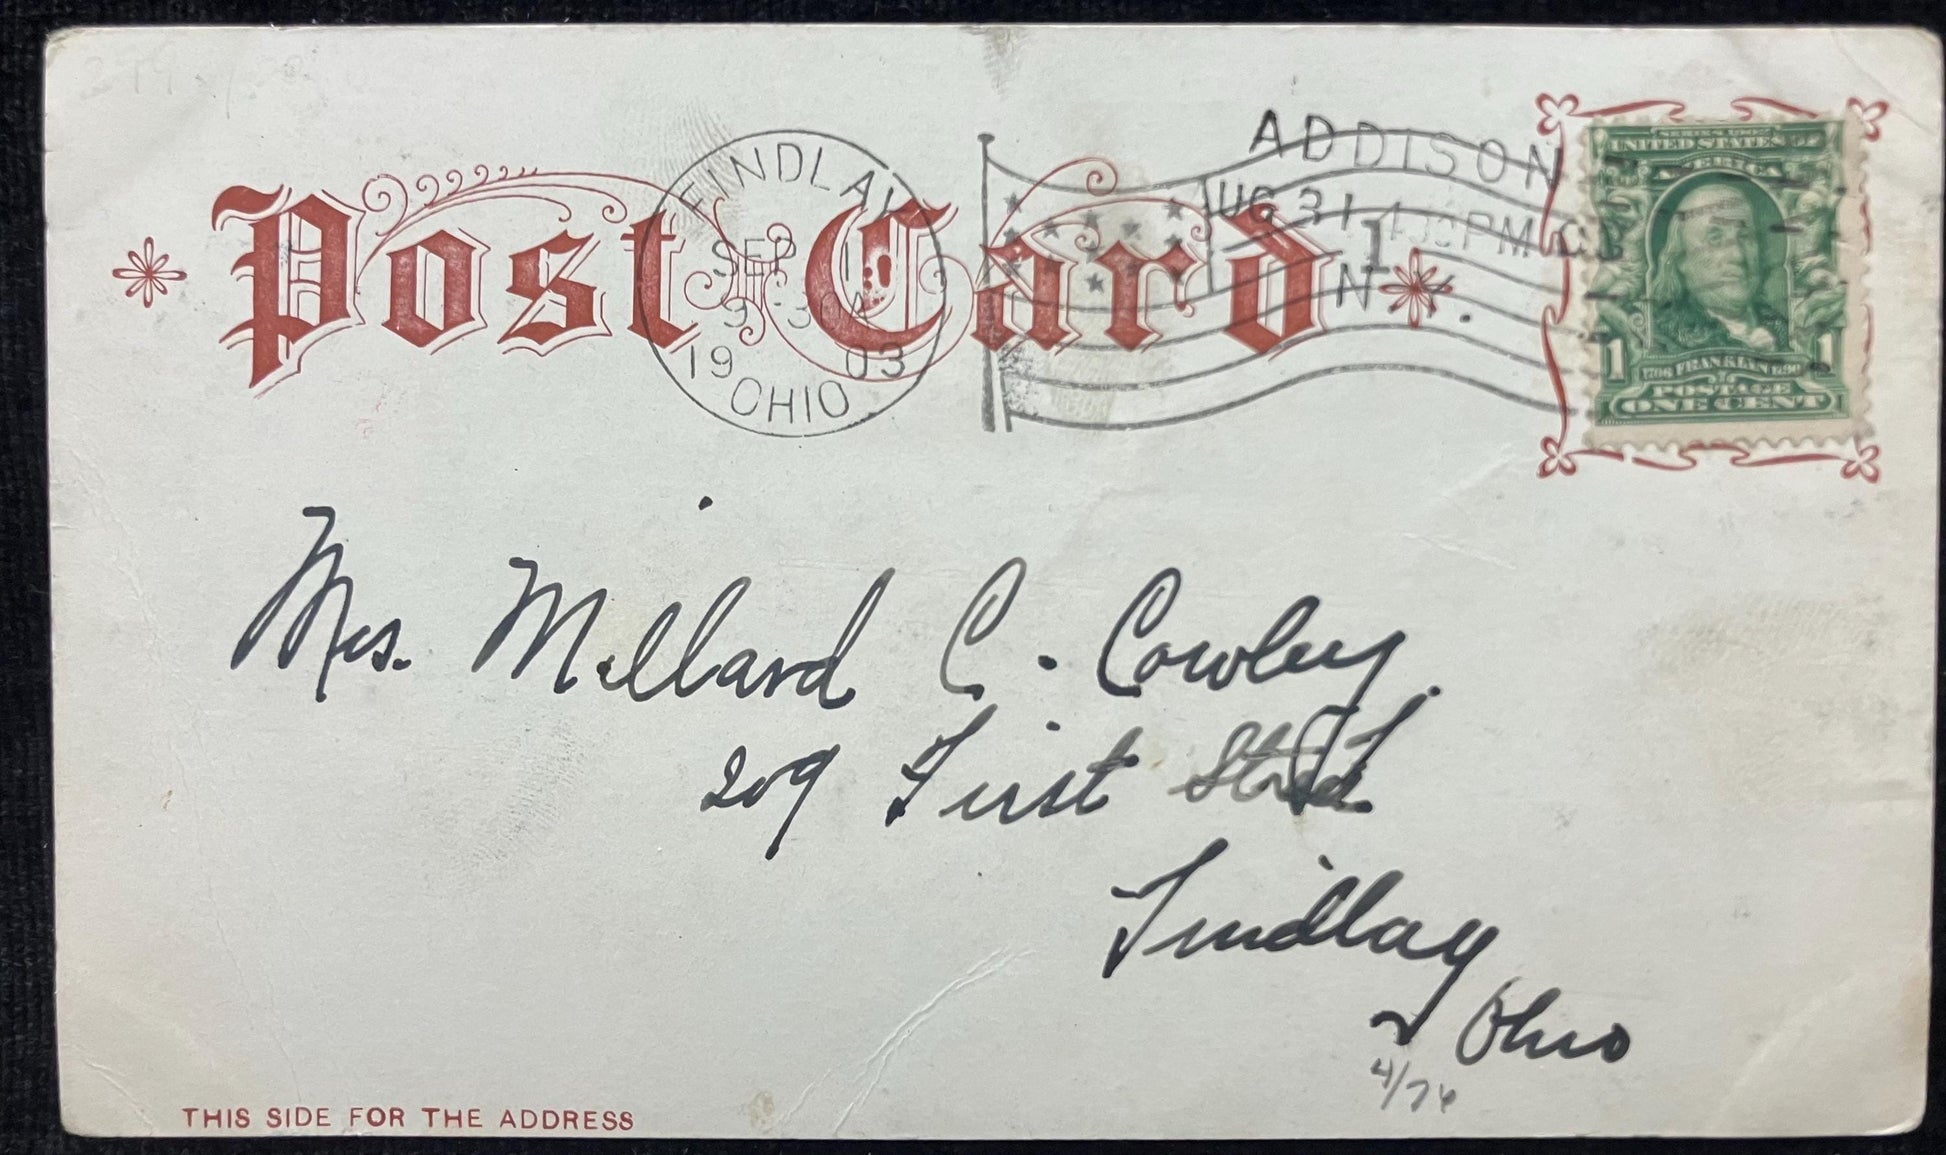 Post Card
FINDLAY
SEP 1
9-30A
1903
OHIO
ADDISON
AUG 31 4 PM
1
N.Y.
SERIES 1902
UNITED STATES OF
AMERICA
1706 FRANKLIN 1790
1 1
POSTAGE
ONE CENT
Mrs. Millard C. Cowley.
209 First Street
Findlay
Ohio
4/76
THIS SIDE FOR THE ADDRESS